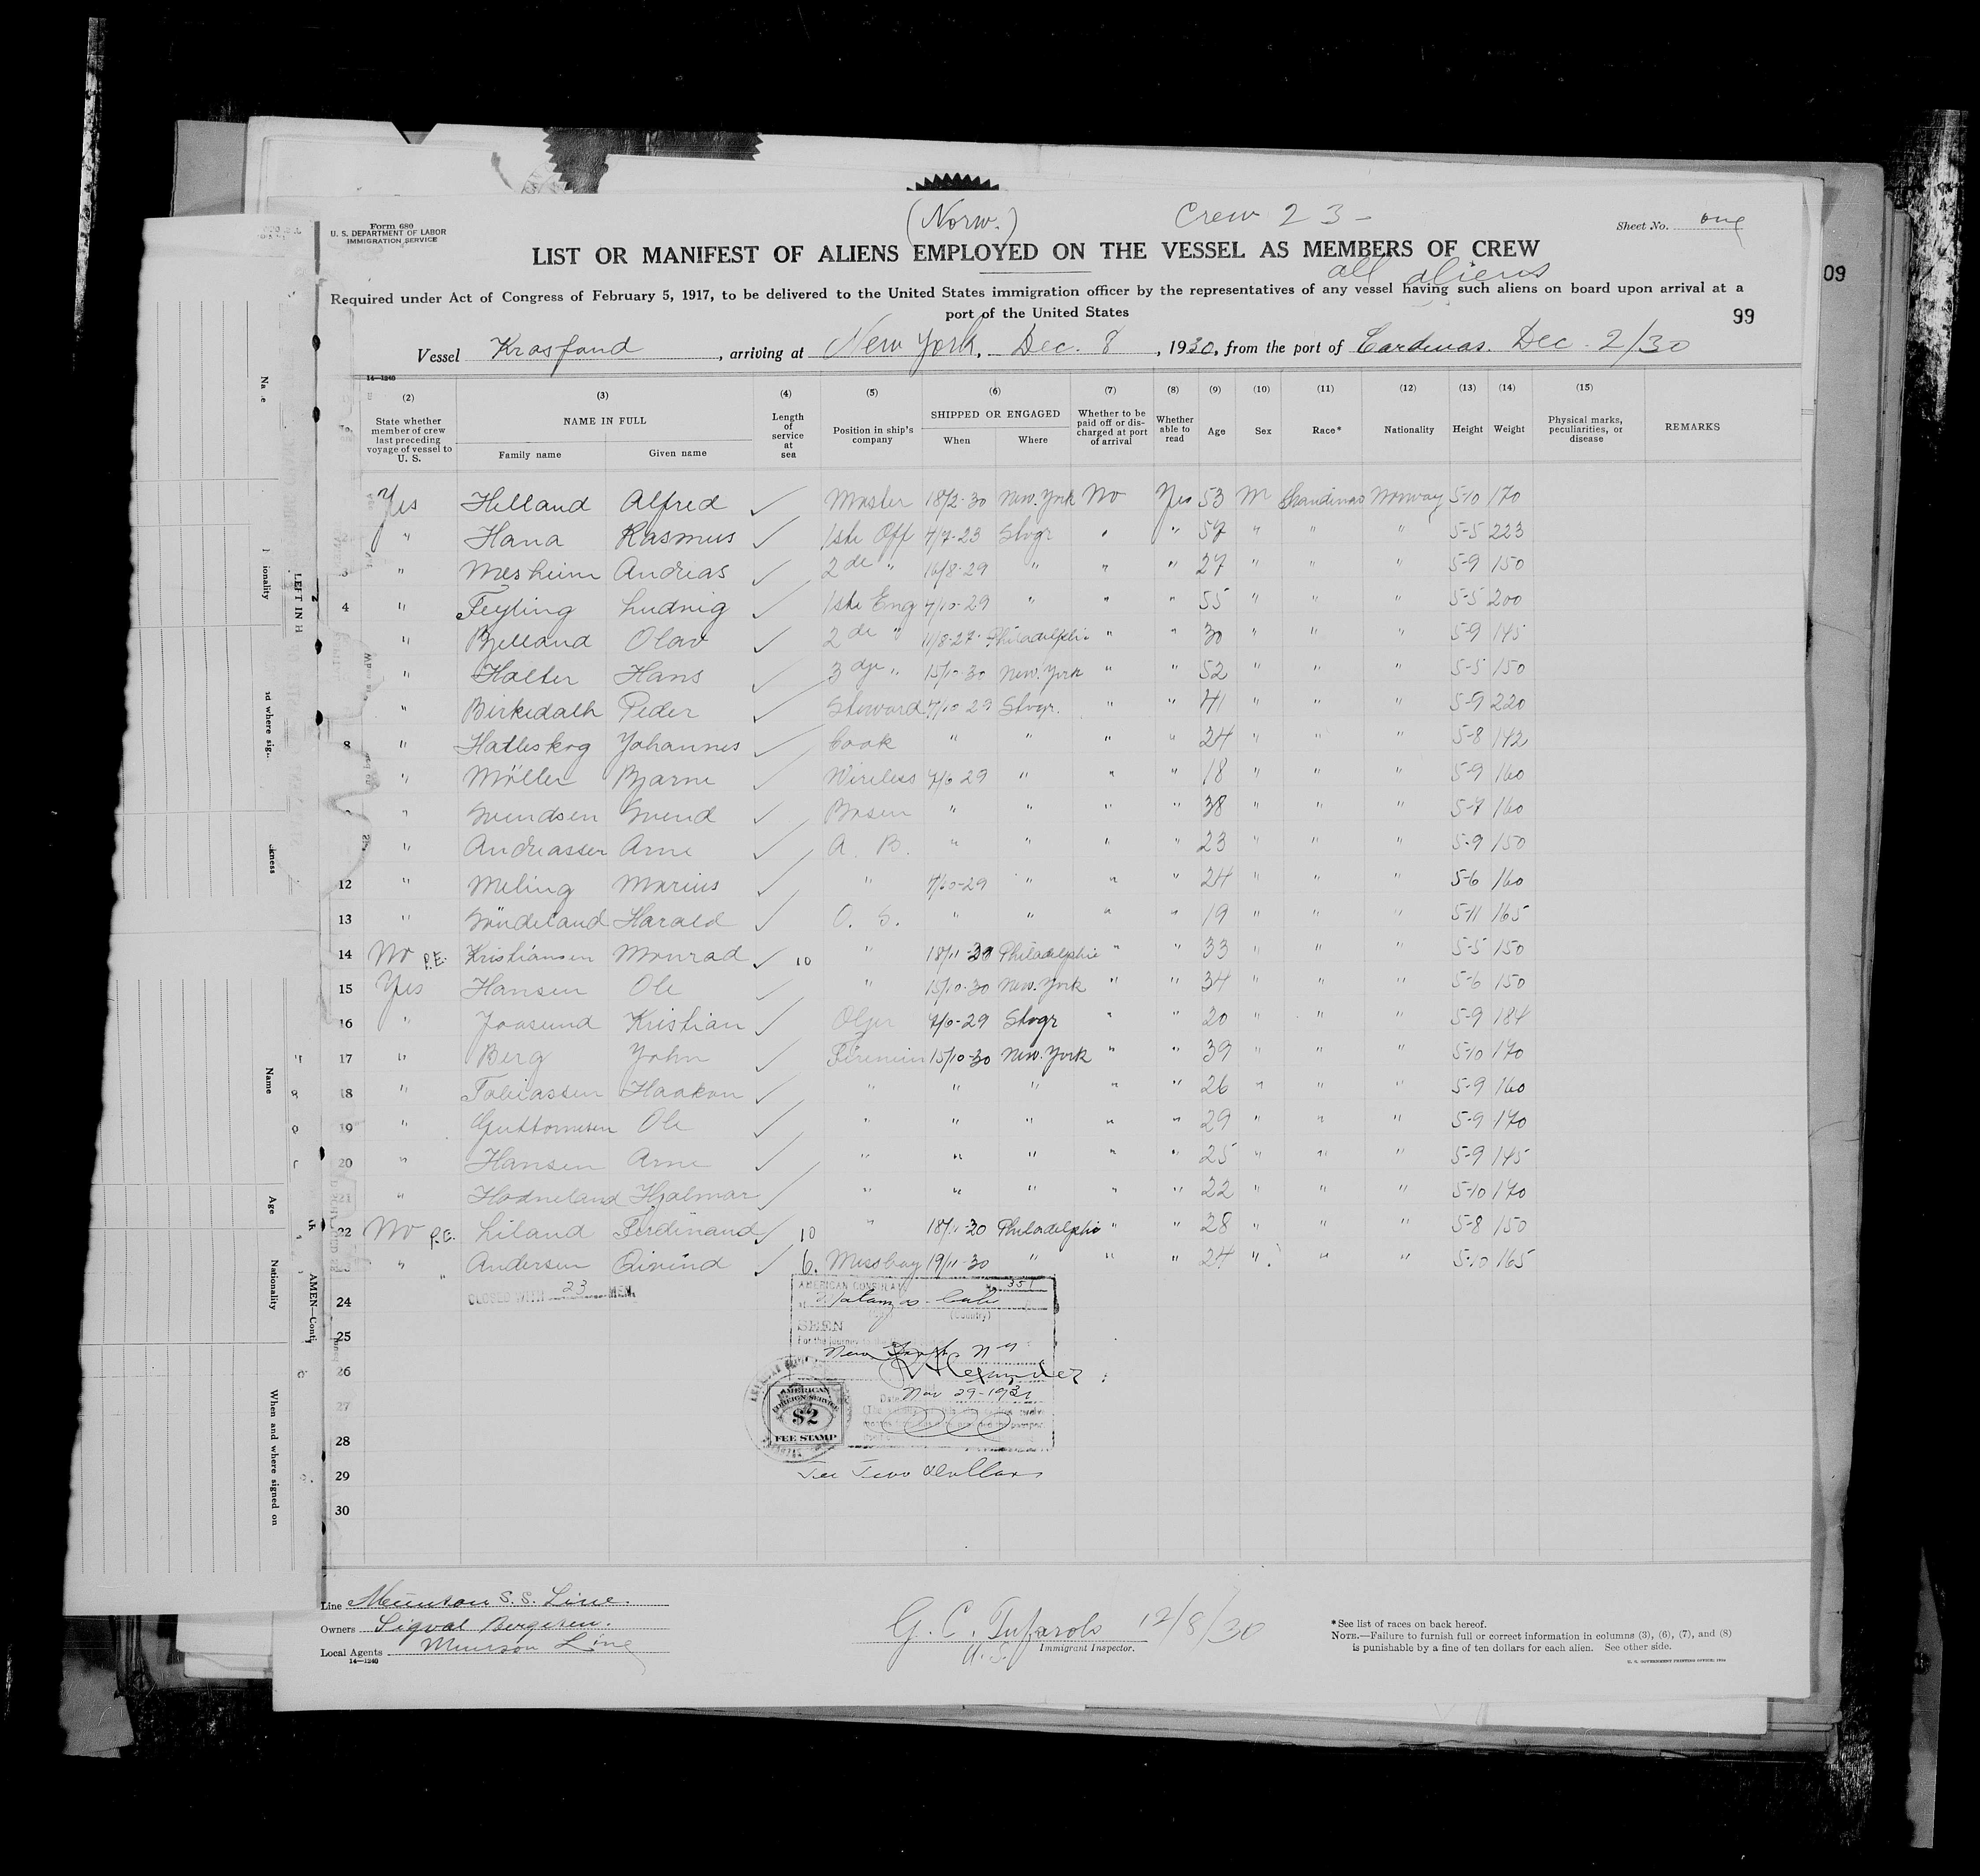 (Norw.) Crew 23 -
Form 680
U. S. DEPARTMENT OF LABOR
IMMIGRATION SERVICE
Sheet No. one
LIST OR MANIFEST OF ALIENS EMPLOYED ON THE VESSEL AS MEMBERS OF CREW
all aliens
Required under Act of Congress of February 5, 1917, to be delivered to the United States immigration officer by the representatives of any vessel having such aliens on board upon arrival at a
port of the United States
99
09
Vessel Krosfond, arriving at New York, Dec. 8, 1930, from the port of Cardenas. Dec. 2/30
14—1240
(2) (3) (4) (5) (6) (7) (8) (9) (10) (11) (12) (13) (14) (15)
State whether member of crew last preceding voyage of vessel to U. S. NAME IN FULL Family name Given name Length of service at sea Position in ship's company SHIPPED OR ENGAGED When Where Whether to be paid off or discharged at port of arrival Whether able to read Age Sex Race* Nationality Height Weight Physical marks, peculiarities, or disease REMARKS
Yes Helland Alfred ✓ Master 18/2-30 New. York No Yes 53 M Scandinav Norway 5-10 170
" Hana Rasmus ✓ 1ste Off 4/7-23 Stvgr " " 57 " " " 5-5 223
" Mesheim Andrias ✓ 2de " 16/8-29 " " " 27 " " " 5-9 150
4 " Feyling Ludvig ✓ 1ste Eng 7/10-29 " " " 55 " " " 5-5 200
" Bjelland Olav ✓ 2de " 11/8-27 Philadelphia " " 30 " " " 5-9 145
" Halter Hans ✓ 3dje " 15/10-30 New. York " " 52 " " " 5-5 150
" Birkedalh Peder ✓ Steward 7/10 29 Stvgr. " " 41 " " " 5-9 220
8 " Hatleskog Johannes ✓ Cook " " " " 24 " " " 5-8 142
" Möller Bjarne ✓ Wireless 7/10 29 " " " 18 " " " 5-9 160
" Svendsen Svend ✓ Bosen " " " " 38 " " " 5-7 160
" Andreassen Arne ✓ A. B. " " " " 23 " " " 5-9 150
12 " Meling Marius ✓ " 7/10-29 " " " 24 " " " 5-6 160
13 " Söndeland Harald ✓ O. S. " " " " 19 " " " 5-11 165
14 No P.E. Kristiansen Monrad ✓ 10 " 18/11-30 Philadelphia " " 33 " " " 5-5 150
15 Yes Hansen Ole ✓ " 15/10-30 New. York " " 34 " " " 5-6 150
16 " Joasund Kristian ✓ Oljer 7/10-29 Stvgr " " 20 " " " 5-9 184
17 " Berg John ✓ Firemein 15/10-30 New. York " " 39 " " " 5-10 170
18 " Tobiassen Haakon ✓ " " " " " 26 " " " 5-9 160
19 " Guttormsen Ole ✓ " " " " " 29 " " " 5-9 170
20 " Hansen Arne ✓ " " " " " 25 " " " 5-9 145
21 " Hodneland Hjalmar ✓ " " " " " 22 " " " 5-10 170
22 No P.E. Liland Ferdinand ✓ 10 " 18/11-30 Philadelphia " " 28 " " " 5-8 150
" " Andersen Eivind ✓ 6. Messboy 19/11-30 " " " 24 " " " 5-10 165
24 CLOSED WITH 23 MEN.
25
26
27
28
29
30
AMERICAN CONSULAR No 351
Matanzas Cuba
(Country)
SEEN
For the journey to the
New York N Y
Alexander
Date Nov 29-1930
AMERICAN
FOREIGN SERVICE
$2
FEE STAMP
Fee Two Dollars
Line Munson S.S. Line.
Owners Sigval Bergesen.
Local Agents Munson Line
14—1240
G. C. Tufarolo 12/8/30
U.S. Immigrant Inspector.
*See list of races on back hereof.
NOTE.—Failure to furnish full or correct information in columns (3), (6), (7), and (8)
is punishable by a fine of ten dollars for each alien. See other side.
Name
Age
Nationality
When and where signed on
LEFT IN H
AMEN—Conti